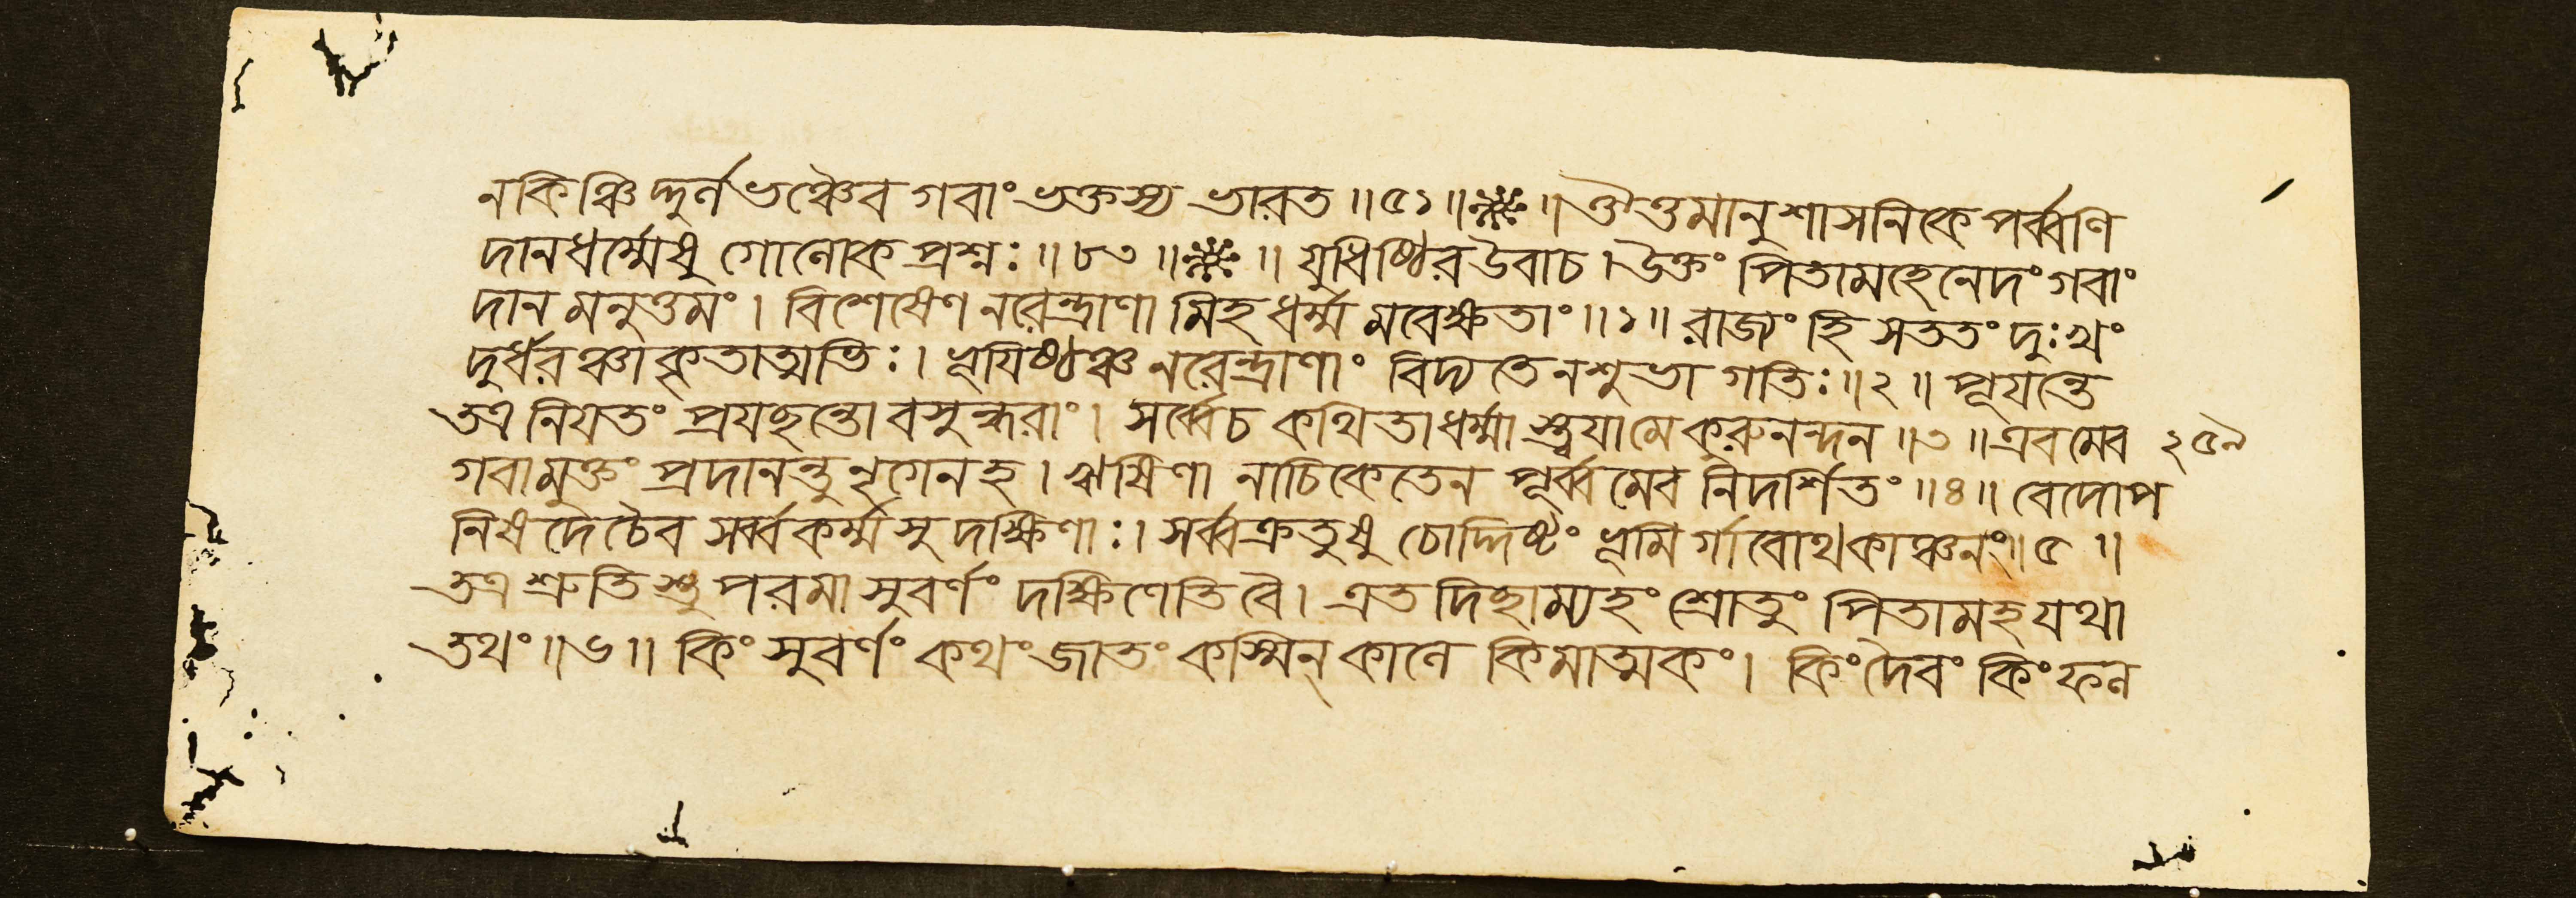 ন কিঞ্চিদ্দুর্লভঞ্চৈব গবাং ভক্তস্য ভারত ॥ ৫১ ॥ ❊ ॥ ঔত্তমানুশাসনিকে পর্ব্বণি
দানধর্ম্মেষু গোলোক প্রশ্নঃ ॥ ৮৩ ॥ ❊ ॥ যুধিষ্ঠির উবাচ । উক্তং পিতামহেনেদং গবাং
দানমনুত্তমং । বিশেষেণ নরেন্দ্রাণামিহ ধর্ম্মমবেক্ষতাং ॥ ১ ॥ রাজ্যং হি সততং দুঃখং
দুর্ধরঞ্চাকৃতাত্মভিঃ । ভূযিষ্ঠঞ্চ নরেন্দ্রাণাং বিদ্যতে ন শুভা গতিঃ ॥ ২ ॥ পূযন্তে
তত্র নিযতং প্রযছন্তো বসুন্ধরাং । সর্ব্বে চ কথিতা ধর্ম্মাস্ত্বযা মে কুরুনন্দন ॥ ৩ ॥ এবমেব
২৫৯
গবামুক্তং প্রদানন্তু নৃগেন হ । ঋষিণা নাচিকেতেন পূর্ব্বমেব নিদর্শিতং ॥ ৪ ॥ বেদোপ
নিষদে চৈব সর্ব্বকর্ম্মসু দক্ষিণাঃ । সর্ব্বক্রতুষু চোদ্দিষ্টং ভূমির্গাবোথ কাঞ্চনং ॥ ৫ ॥
তত্র শ্রুতিস্তু পরমা সুবর্ণং দক্ষিণেতি বৈ । এতদিছাম্যহং শ্রোতুং পিতামহ যথা
তথং ॥ ৬ ॥ কিং সুবর্ণং কথং জাতং কস্মিন্ কালে কিমাত্মকং । কিং দৈবং কিং ফল